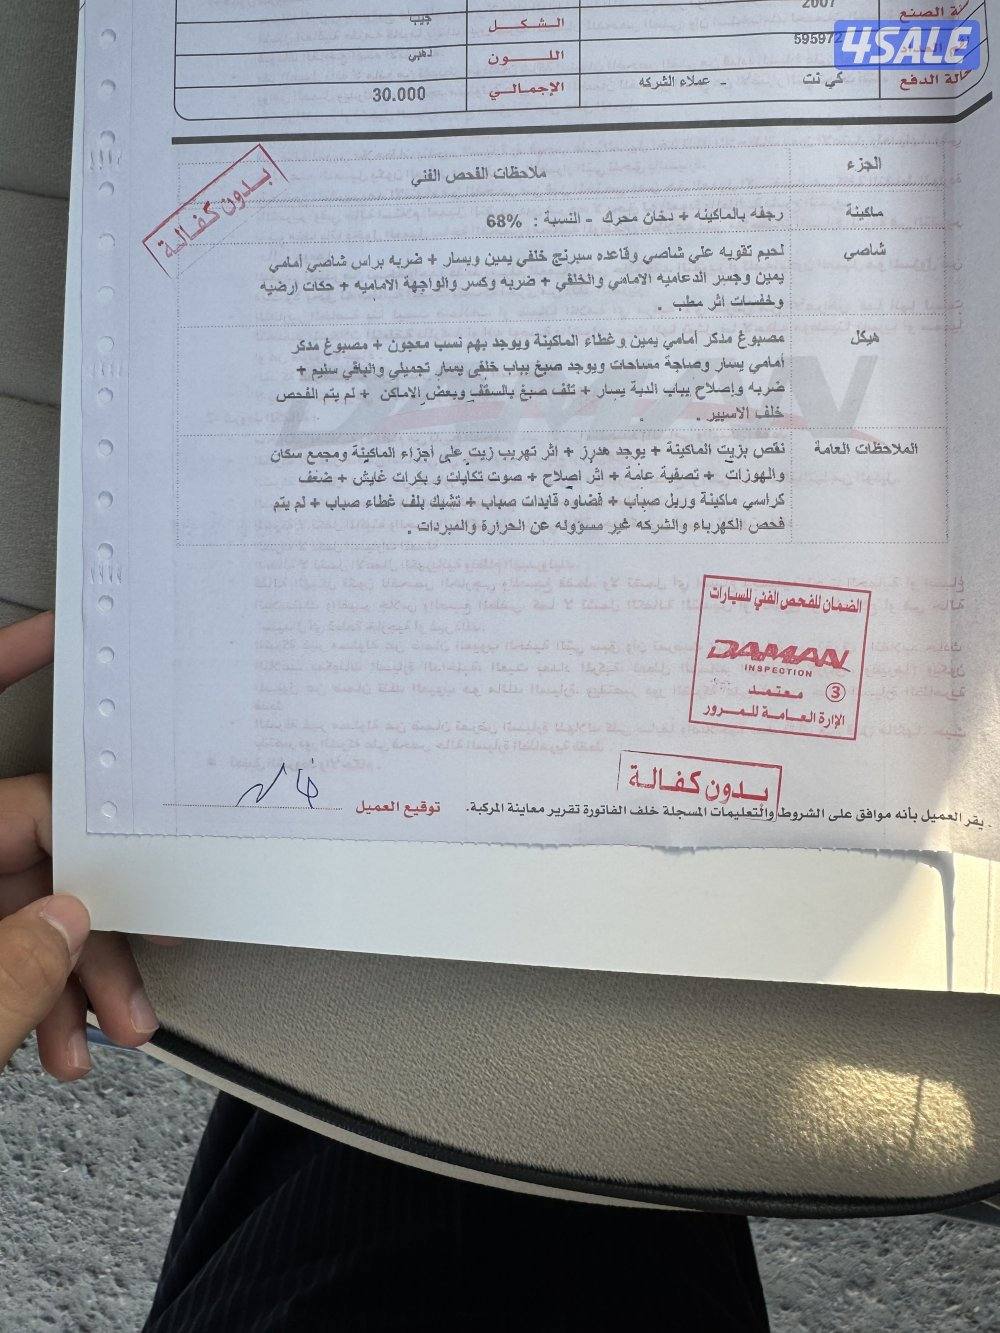 4SALE
سنة الصنع 2007 الشكل جيب
595972 اللون ذهبي
حالة الدفع كي نت - عملاء الشركه الإجمالي 30.000
بدون كفالة
الجزء ملاحظات الفحص الفني
ماكينة رجفه بالماكينه + دخان محرك - النسبة : 68%
شاصي لحيم تقويه علي شاصي وقاعده سبرنج خلفي يمين ويسار + ضربه براس شاصي أمامي
يمين وجسر الدعاميه الامامي والخلفي + ضربه وكسر والواجهة الاماميه + حكات ارضيه
وخفسات اثر مطب .
هيكل مصبوغ مدكر أمامي يمين وغطاء الماكينة ويوجد بهم نسب معجون + مصبوغ مدكر
أمامي يسار وصاجة مساحات ويوجد صبغ بباب خلفي يسار تجميلي والباقي سليم +
ضربه وإصلاح بباب الدبة يسار + تلف صبغ بالسقف وبعض الاماكن + لم يتم الفحص
خلف الاسبير .
الملاحظات العامة نقص بزيت الماكينة + يوجد هدرز + اثر تهريب زيت على أجزاء الماكينة ومجمع سكان
والهوزات + تصفية عامة + اثر إصلاح + صوت تكايات و بكرات غايش + ضعف
كراسي ماكينة وربل صباب + فضاوه قايدات صباب + تشيك بلف غطاء صباب + لم يتم
فحص الكهرباء والشركه غير مسؤوله عن الحرارة والمبردات .
الضمان للفحص الفني للسيارات
DAMAN
INSPECTION
معتمد 3
الإرارة العامة للمرور
بدون كفالة
يقر العميل بأنه موافق على الشروط والتعليمات المسجلة خلف الفاتورة تقرير معاينة المركبة. توقيع العميل